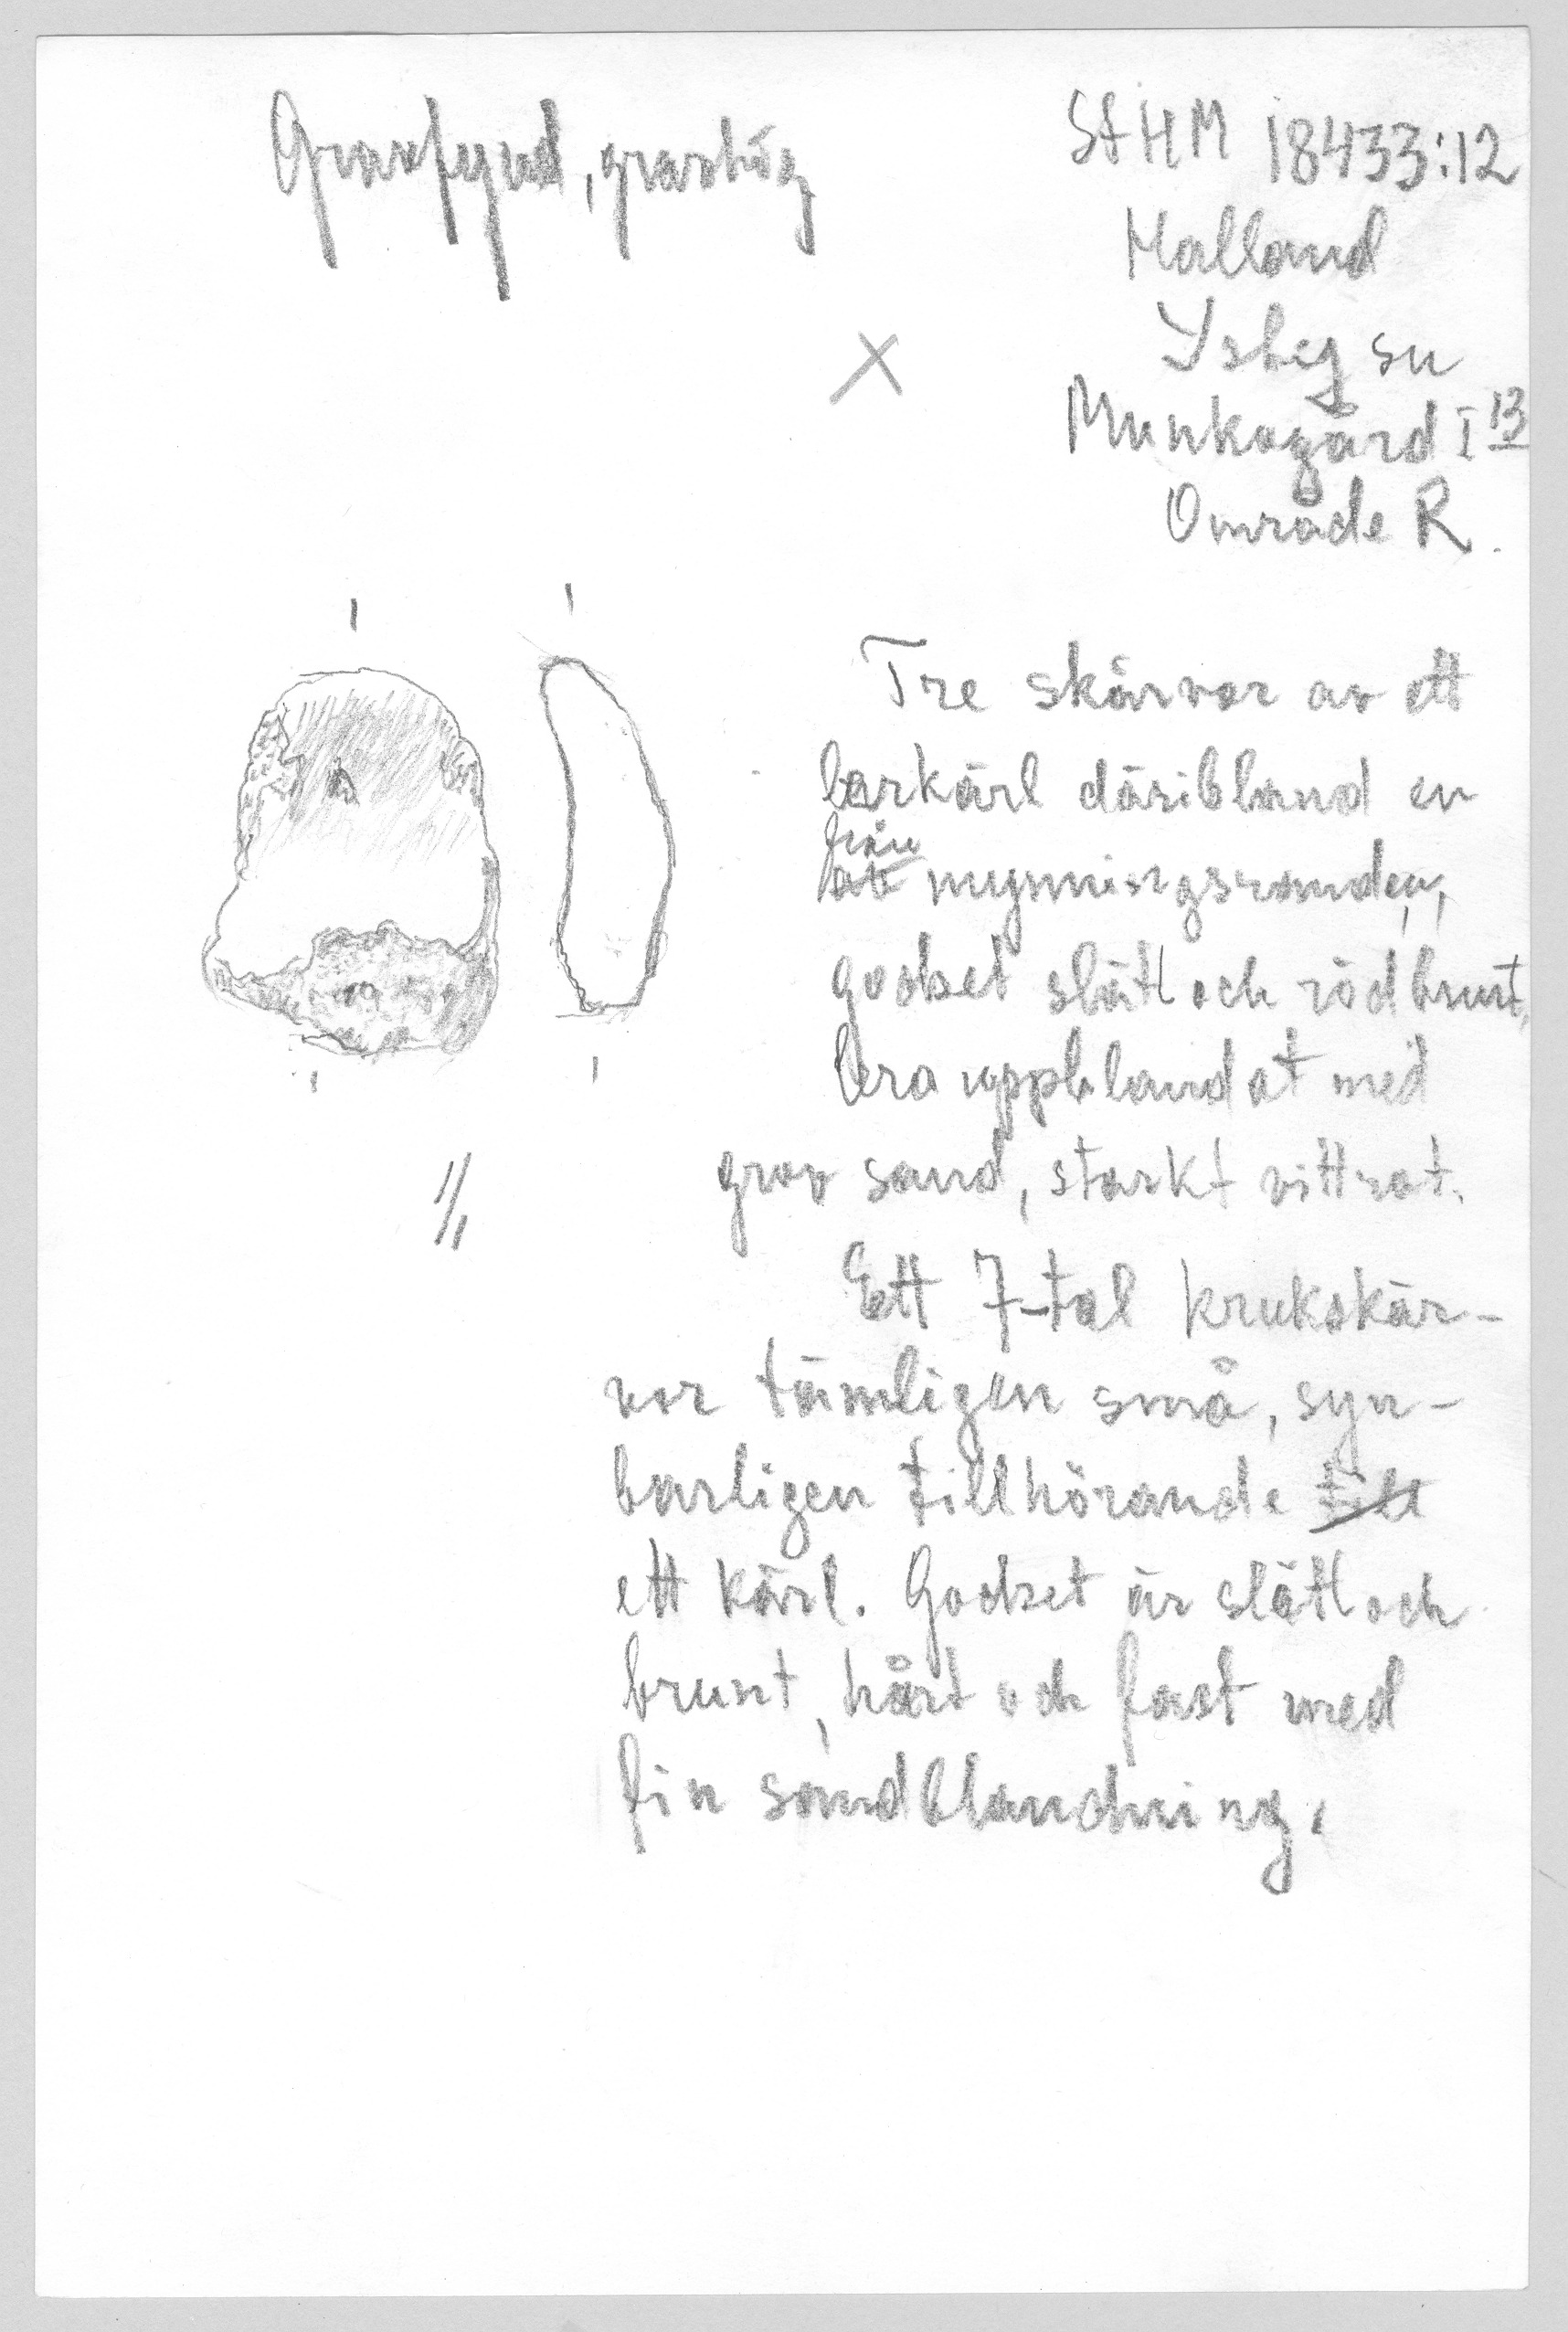 Gravfynd, gravhög
StHM 18433:12
Halland
Ysby sn
Munkagård I 13
Område R.
Tre skärvor av ett
lerkärl däribland en
från
av mynningsranden,
godset slätt och rödbrunt,
lera uppblandat med
grov sand, starkt vittrat.
1/1
Ett 7-tal krukskär-
vor tämligen små, syn-
barligen tillhörande till
ett kärl. Godset är slätt och
brunt, hårt och fast med
fin sandblandning.